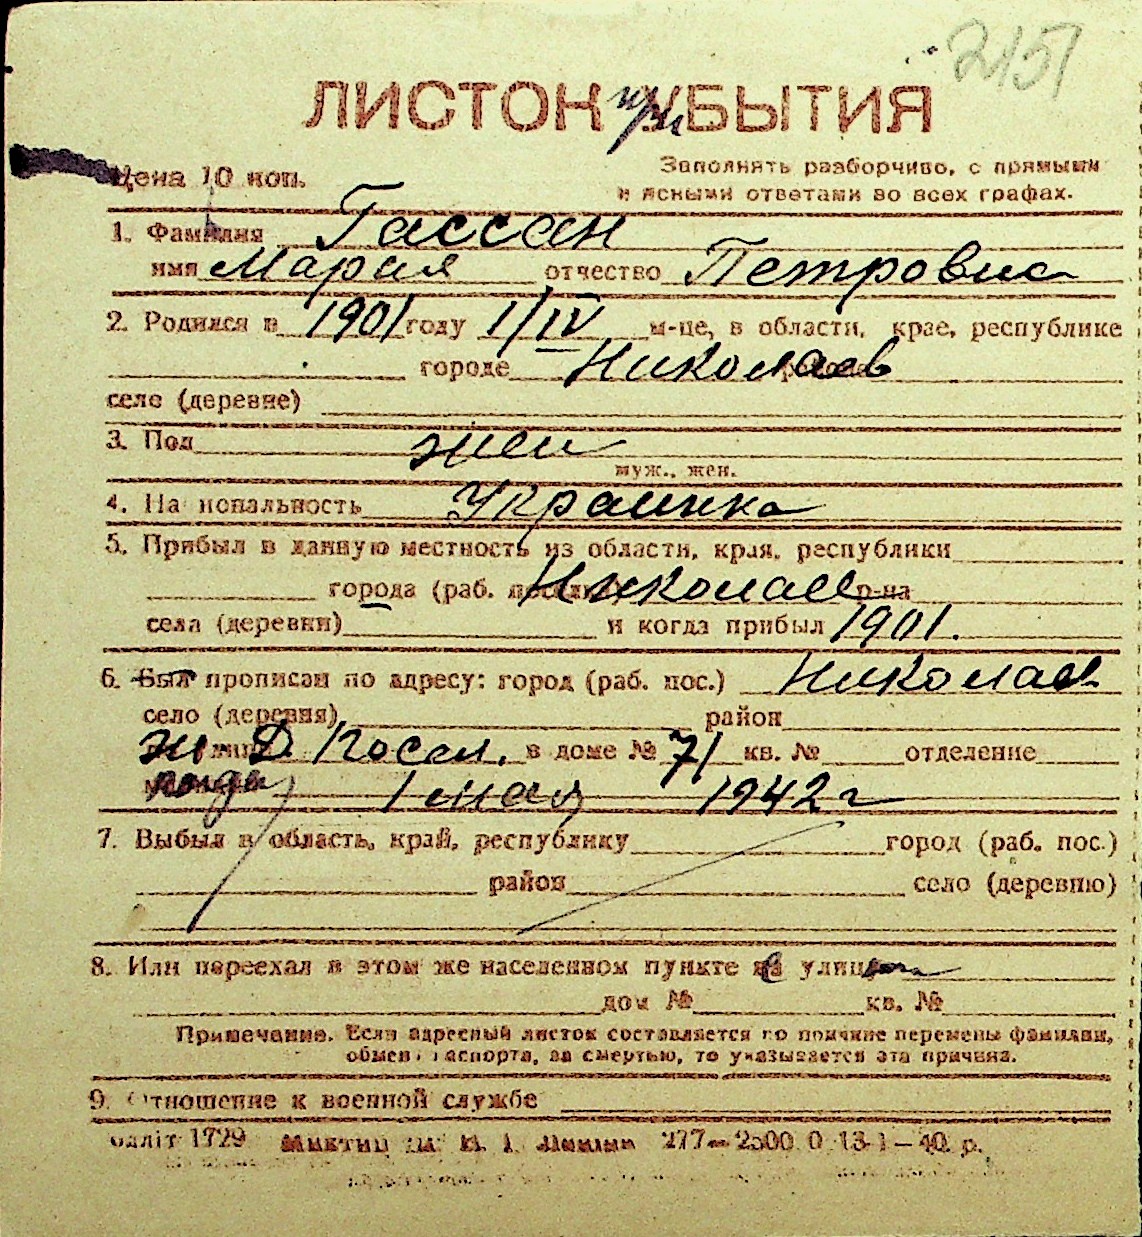 2151
ЛИСТОК при УБЫТИЯ
Цена 10 коп.
Заполнять разборчиво, с прямыми
и ясными ответами во всех графах.
1. Фамилия Гассан
имя Мария отчество Петровна
2. Родился в 1901 году 1/IV м-це, в области, крае, республике
городе Николаев
село (деревне)
3. Пол жен
муж., жен.
4. Национальность Украинка
5. Прибыл в данную местность из области, края, республики
города (раб. Николаев р-на
села (деревни) и когда прибыл 1901.
6. Был прописан по адресу: город (раб. пос.) Николаев
село (деревня) район
Д. Посел. в доме № 71 кв. № отделение
1 мая 1942 г
7. Выбыл в область, край, республику город (раб. пос.)
район село (деревню)
8. Или переехал в этом же населенном пункте
дом № кв. №
Примечание. Если адресный листок составляется по причине перемены фамилии,
обмена паспорта, за смертью, то указывается эта причина.
9. Отношение к военной службе
1729 277—2500 0 13-1—40 р.